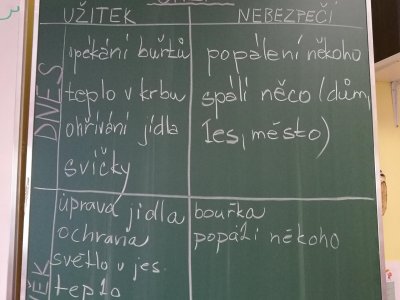 UŽITEK NEBEZPEČÍ
DNES
opékání buřtů
teplo v krbu
ohřívání jídla
svíčky
popálení někoho
spálí něco (dům,
les, město)
úprava jídla
ochrana
světlo v jes.
teplo
bouřka
popálí někoho